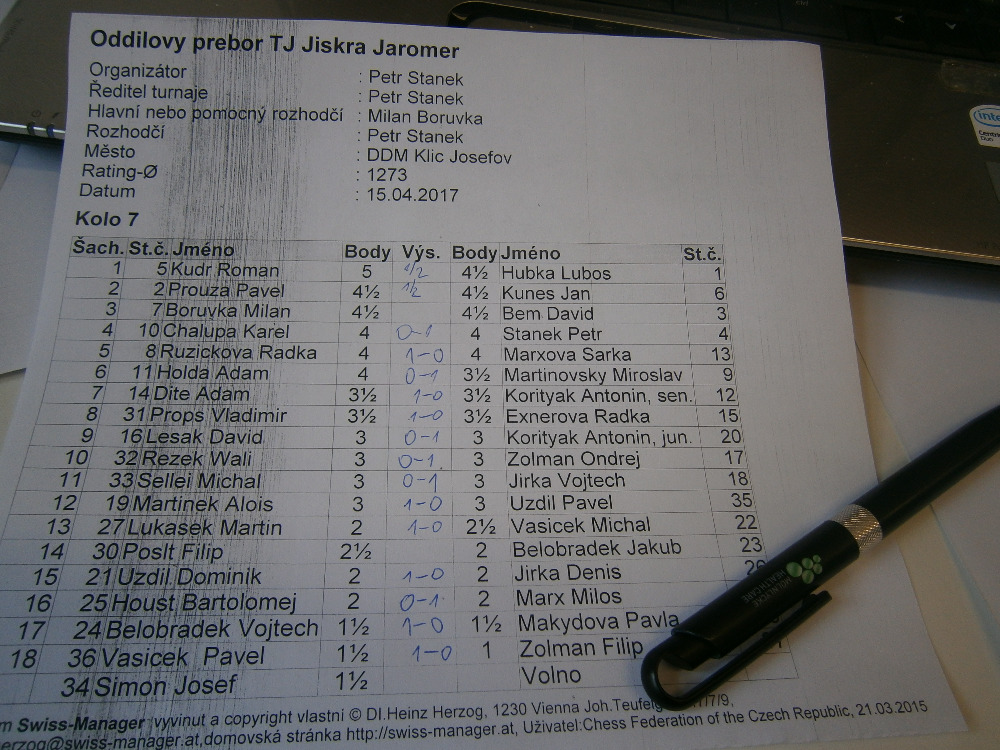 Oddilovy prebor TJ Jiskra Jaromer
Organizátor : Petr Stanek
Ředitel turnaje : Petr Stanek
Hlavní nebo pomocný rozhodčí : Milan Boruvka
Rozhodčí : Petr Stanek
Město : DDM Klic Josefov
Rating-Ø : 1273
Datum : 15.04.2017
Kolo 7
Šach. St.č. Jméno Body Výs. Body Jméno St.č.
1 5 Kudr Roman 5 1/2 4½ Hubka Lubos 1
2 2 Prouza Pavel 4½ 1/2 4½ Kunes Jan 6
3 7 Boruvka Milan 4½ 4½ Bem David 3
4 10 Chalupa Karel 4 0-1 4 Stanek Petr 4
5 8 Ruzickova Radka 4 1-0 4 Marxova Sarka 13
6 11 Holda Adam 4 0-1 3½ Martinovsky Miroslav 9
7 14 Dite Adam 3½ 1-0 3½ Korityak Antonin, sen. 12
8 31 Props Vladimir 3½ 1-0 3½ Exnerova Radka 15
9 16 Lesak David 3 0-1 3 Korityak Antonin, jun. 20
10 32 Rezek Wali 3 0-1 3 Zolman Ondrej 17
11 33 Sellei Michal 3 0-1 3 Jirka Vojtech 18
12 19 Martinek Alois 3 1-0 3 Uzdil Pavel 35
13 27 Lukasek Martin 2 1-0 2½ Vasicek Michal 22
14 30 Poslt Filip 2½ 2 Belobradek Jakub 23
15 21 Uzdil Dominik 2 1-0 2 Jirka Denis
16 25 Houst Bartolomej 2 0-1 2 Marx Milos
17 24 Belobradek Vojtech 1½ 1-0 1½ Makydova Pavla
18 36 Vasicek Pavel 1½ 1-0 1 Zolman Filip
34 Simon Josef 1½ Volno
m Swiss-Manager vyvinut a copyright vlastní © DI.Heinz Herzog, 1230 Vienna Joh.Teufelg 7/9,
erzog@swiss-manager.at,domovská stránka http://swiss-manager.at, Uživatel:Chess Federation of the Czech Republic, 21.03.2015